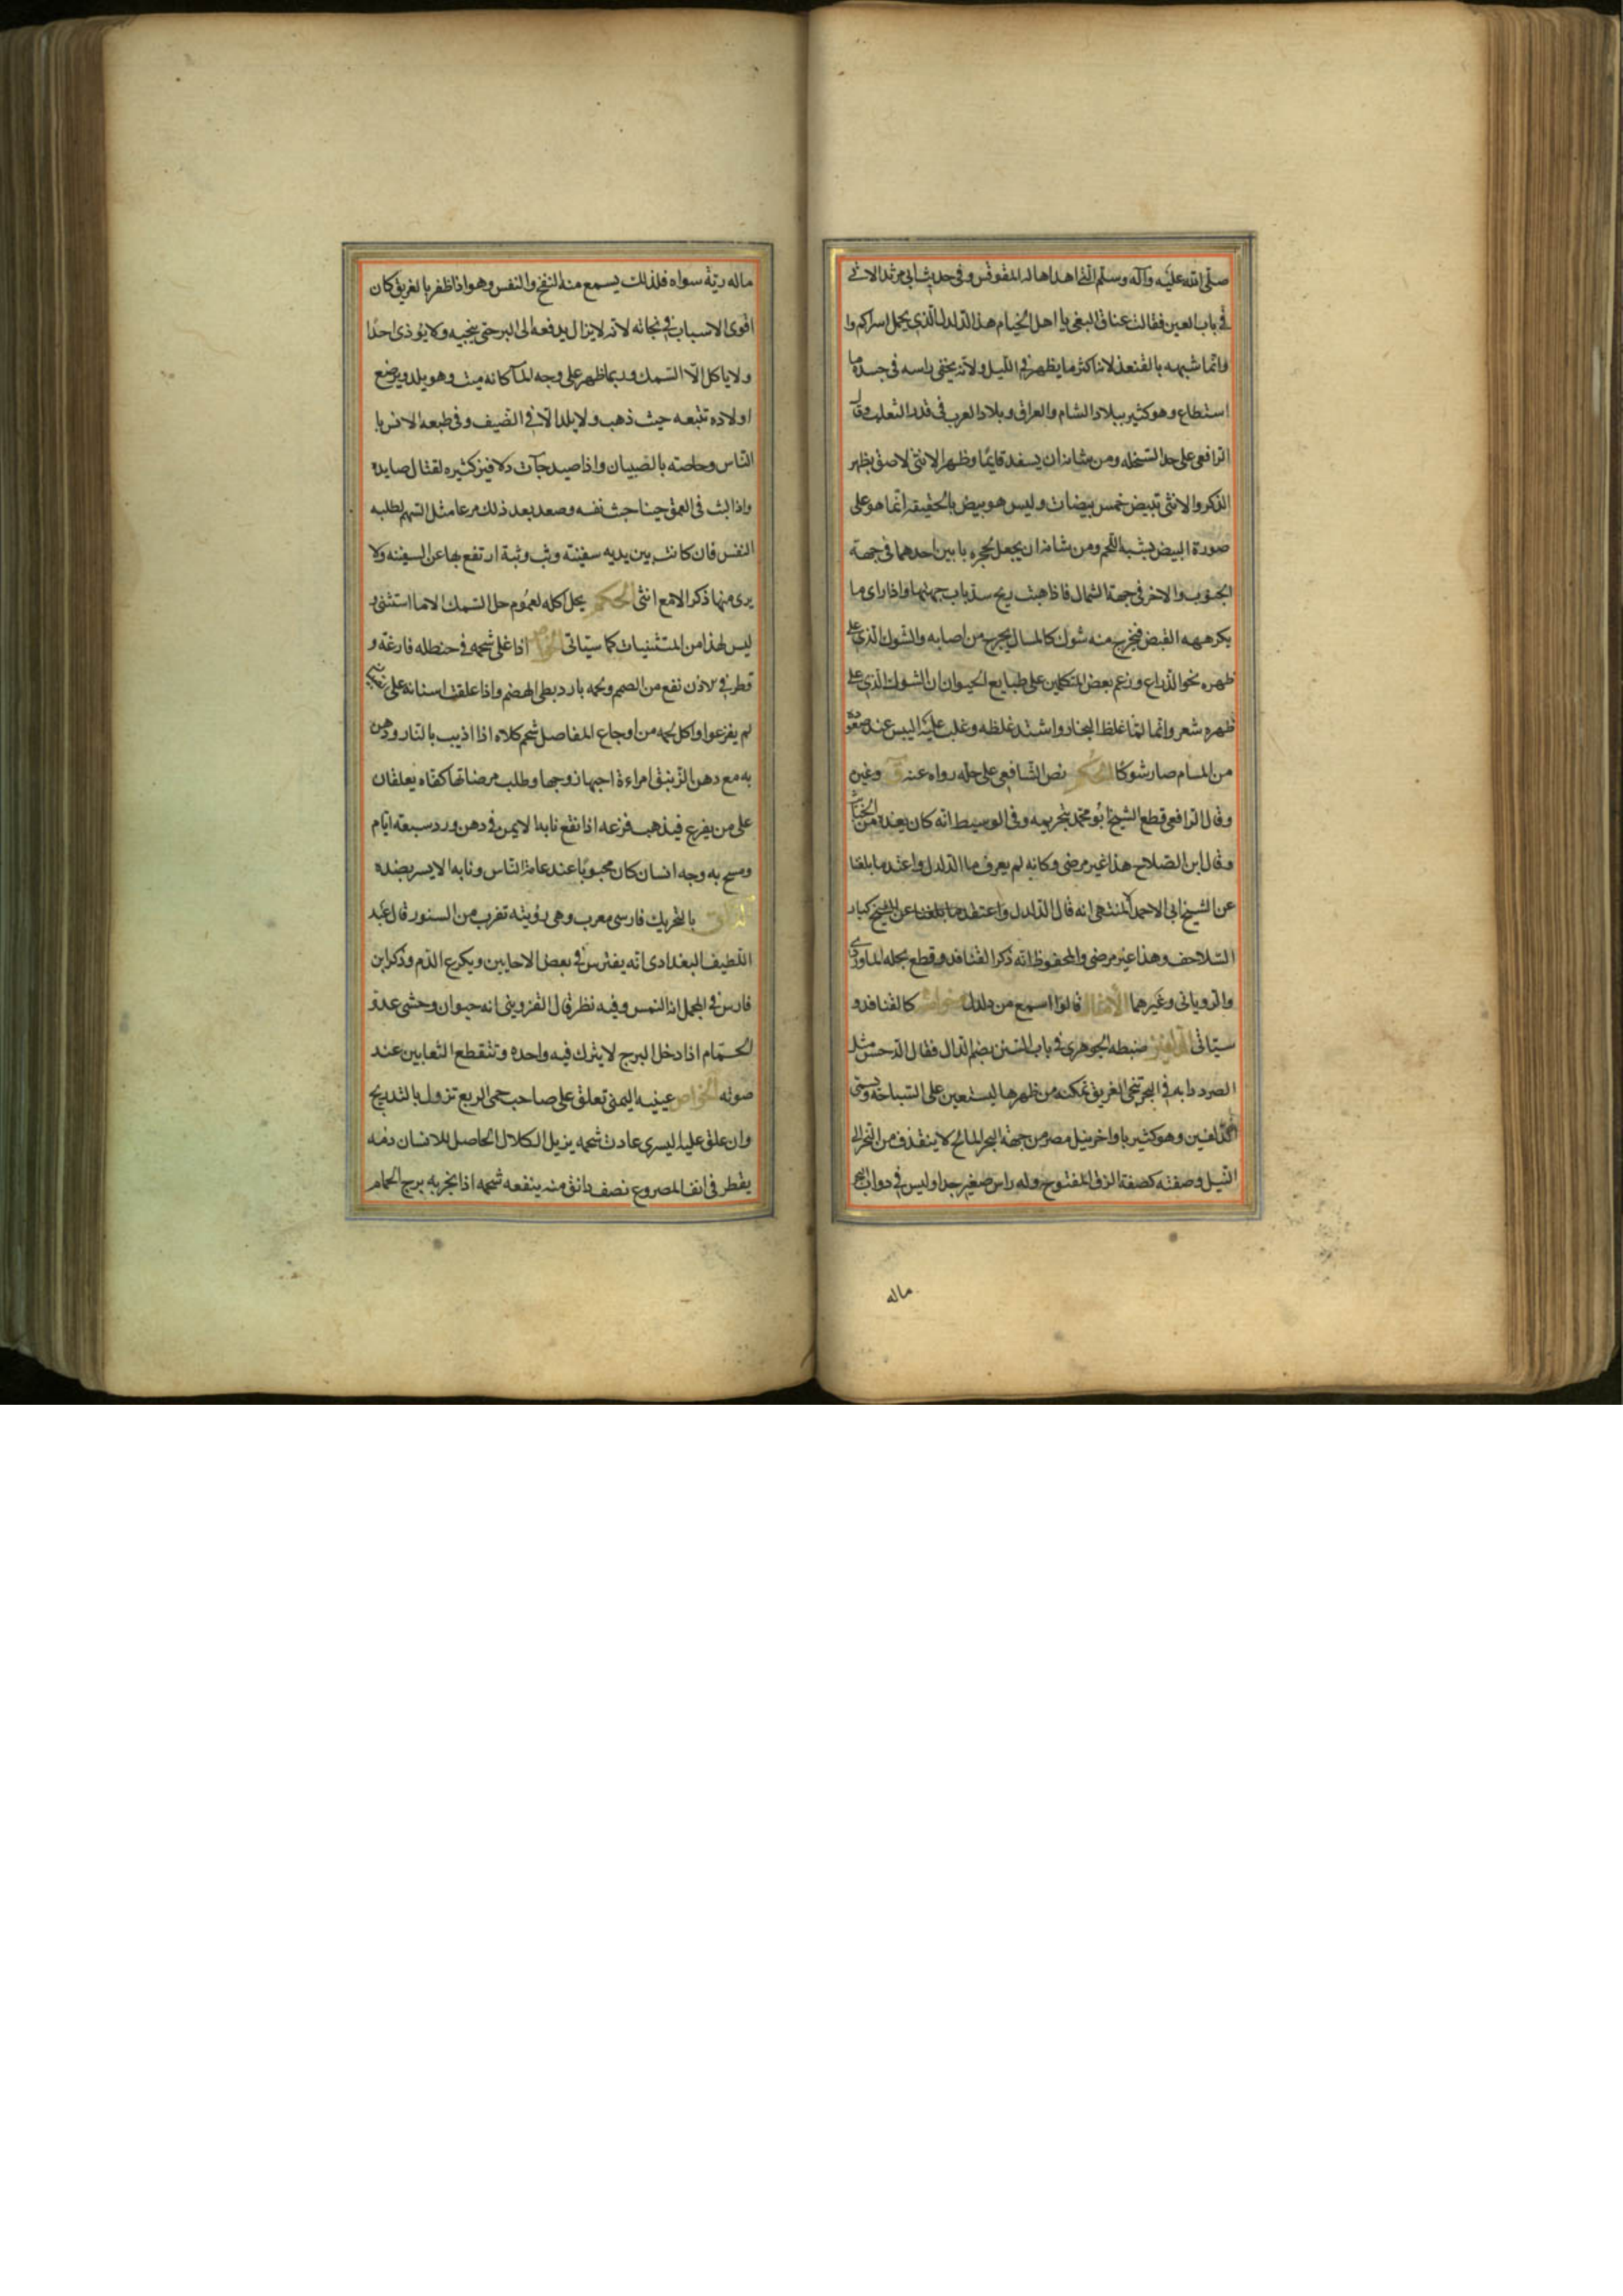 صلى الله عليه وآله وسلم التي اهداها له المقوقس وفي حديث ابي مرثد الاتي
في باب العين فقالت عناق البغي يا اهل الخيام هذا الدلدل الذي يحمل اسراكم وا
وانما شبهه بالقنفذ لانه اكثر ما يظهر في الليل ولانه يخفي راسه في جسده ما
استطاع وهو كثير ببلاد الشام والعراق وبلاد العرب في قدر الثعلب وقال
الرافعي على حد السخله ومن شانه ان يسفد قايما وظهر الانثى لاصق بظهر
الذكر والانثى تبيض خمس بيضات وليس هو بيض بالحقيقه انما هو على
صورة البيض يشبه اللحم ومن شانه ان يجعل لجحره بابين احدهما في جهة
الجنوب والاخر في جهة الشمال فاذا هبت ريح سد باب جهتها واذا راى ما
يكرهه القبض فيخرج منه شوك كالمسال يجرح من اصابه والشوك الذي على
ظهره نحو الذراع وزعم بعض المتكلمين على طبايع الحيوان ان الشوك الذي على
ظهره شعر وانما لما غلظ البخار واشتد غلظه وغلب عليه اليبس عند صعوده
من المسام صار شوكا الحكم نص الشافعي على حله رواه عنه وغين
وقال الرافعي قطع الشيخ ابو محمد بتحريمه وفي الوسيط انه كان يعده من الخبائث
وقال ابن الصلاح هذا غير مرضي وكانه لم يعرف ما الدلدل واعتد ما بلغنا
عن الشيخ ابي الاحمد المنتهى انه قال الدلدل واعتقد ما بلغنا عن الشيخ كبار
السلاحف وهذا غير مرضي والمحفوظ انه ذكر القنافد وقطع بحله الماوردي
والروياني وغيرهما الامثال قالوا اسمع من دلدل خواصه كالقنافد و
سياتي الدلفين ضبطه الجوهري في باب السين بضم الدال فقال الدخس مثل
الصرد دابه في البحر تنجي الغريق تمكنه من ظهرها ليستعين على السباحة وتسمى
الدلفين وهو كثير باواخر نيل مصر من جهة البحر المالح لا ينقذف من البحر الى
النيل وصفته كصفة الزق المفتوح وله راس صغير جدا وليس في دواب البحر
ماله
ماله رية سواه فلذلك يسمع منه النفخ والنفس وهو اذا ظفر بالغريق كان
اقوى الاسباب في نجاته لانه لا يزال يدفعه الى البر حتى ينجيه ولا يوذي احدا
ولا ياكل الا السمك وربما ظهر على وجه المآ كانه ميت وهو يلد ويرضع
اولاده تتبعه حيث ذهب ولا يلد الا في الصيف وفي طبعه الانس با
الناس وخاصته بالصبيان واذا صيد جآت دلافين كثيره لقتال صايده
واذا لبث في العمق حينا حبث نفسه وصعد بعد ذلك مرعا مثل السهم لطلبه
النفس فان كانت بين يديه سفينته وثب وثبة ارتفع بها عن السفينه ولا
يرى منها ذكر الا مع انثى الحكم يحل اكله لعموم حل السمك الا ما استثنى و
ليس هذا من المستثنيات كما سياتي الخواص اذا غلى شحمه في حنظله فارغة و
قطر في لاذن نفع من الصمم ولحمه بارد بطي الهضم واذا علقت اسنانه على
لم يفزعوا واكل لحمه من اوجاع المفاصل شحم كلاه اذا اذيب بالنار ودهن
به مع دهن الزنبق امراءة احبها زوجها وطلب مرضاتها كفاه يعلقان
على من يفزع فيذهب فزعه اذا نقع نابه الايمن في دهن ورد سبعة ايام
ومسح به وجه انسان كان محبوبا عند عامة الناس ونابه الايسر بضده
الدلق بالتحريك فارسي معرب وهي دويته تقرب من السنور قال عبد
اللطيف البغدادي انه يفترس في بعض الاحايين ويكرع الدم وذكر ابن
فارس في المجمل انه النمس وفيه نظر قال القزويني انه حيوان وحشي عدو
الحمام اذا دخل البرج لا يترك فيه واحده وتنقطع الثعابين عند
صوته الخواص عينيه اليمنى تعلق على صاحب حمى الربع تزول بالتدريج
وان علق عليه اليسرى عادت شحمه يزيل الكلال الحاصل للانسان دمه
يقطر في انف المصروع نصف دانق منه ينفعه شحمه اذا بخر به برج الحمام